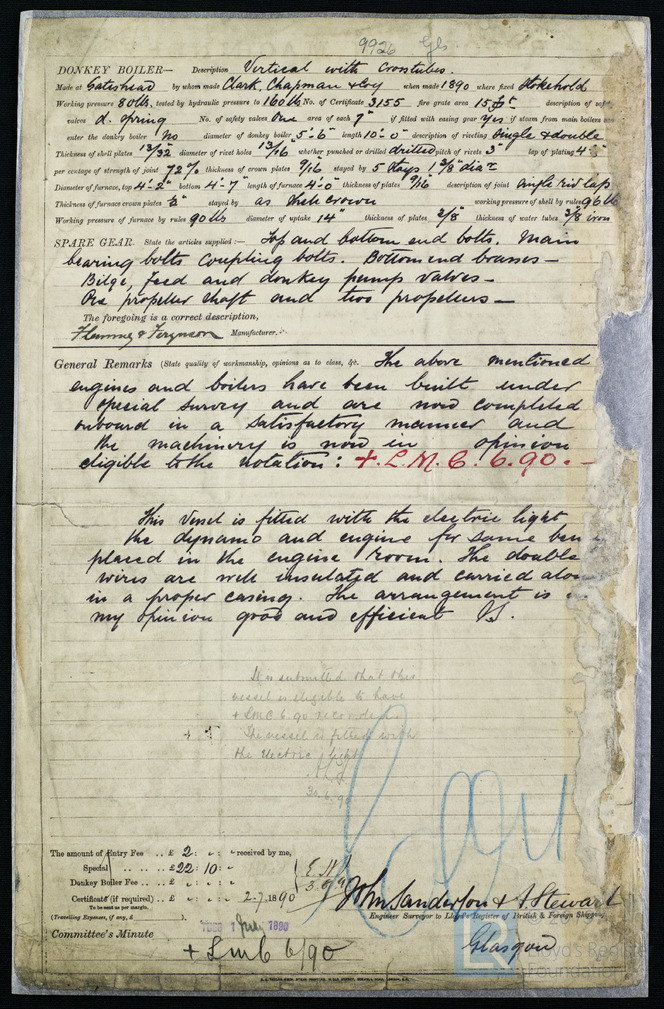 9926 Gls
DONKEY BOILER— Description Vertical with Crosstubes.
Made at Gateshead by whom made Clark, Chapman & Coy when made 1890 where fixed Stokehold
Working pressure 80 lbs. tested by hydraulic pressure to 160 lbs No. of Certificate 3155 fire grate area 15 description of
valves d. spring No. of safety valves One area of each 7" if fitted with easing gear Yes if steam from main boilers
enter the donkey boiler No diameter of donkey boiler 5'-6" length 10'-0" description of riveting Single & double
Thickness of shell plates 13/32 diameter of rivet holes 13/16" whether punched or drilled drilled pitch of rivets 3" lap of plating
per centage of strength of joint 72% thickness of crown plates 9/16 stayed by 5 stays 1 3/8" diar
Diameter of furnace, top 4'-2" bottom 4'-7" length of furnace 4'-0" thickness of plates 9/16 description of joint Single riv lap
Thickness of furnace crown plates stayed by as shell crown working pressure of shell by rules 96 lb
Working pressure of furnace by rules 90 lbs diameter of uptake 14" thickness of plates 3/8" thickness of water tubes 3/8 iron
SPARE GEAR. State the articles supplied:— Top and bottom end bolts. Main
bearing bolts Coupling bolts. Bottom end brasses—
Bilge, feed and donkey pump valves—
One propeller shaft and two propellers—
The foregoing is a correct description,
Fleming & Ferguson Manufacturer.
General Remarks (State quality of workmanship, opinions as to class, &c. The above mentioned
engines and boilers have been built under
special survey and are now completed
onboard in a satisfactory manner and
the machinery is now in opinion
eligible to the notation: +.L.M.C. 6.90.—
This Vessel is fitted with the electric light
the dynamo and engine for same being
placed in the engine room. The double
wires are well insulated and carried
in a proper casing. The arrangement is in
my opinion good and efficient
It is submitted that this
vessel is eligible to have
+ LMC 6.90 recorded.
The vessel is fitted with
the Electric light
The amount of Entry Fee .. £ 2 : " : " received by me,
Special .. £ 22 : 10 : "
Donkey Boiler Fee .. £ " : " : "
Certificate (if required) .. £ " : " : " 2.7.1890
To be sent as per margin.
(Travelling Expenses, if any, £ ).
John Sanderson & A. Stewart
Engineer Surveyor to Lloyd's Register of British & Foreign Shipping
Committee's Minute
TUES 1 July 1890
+ Lmc 6/90
Glasgow
Lloyd's Register
Foundation